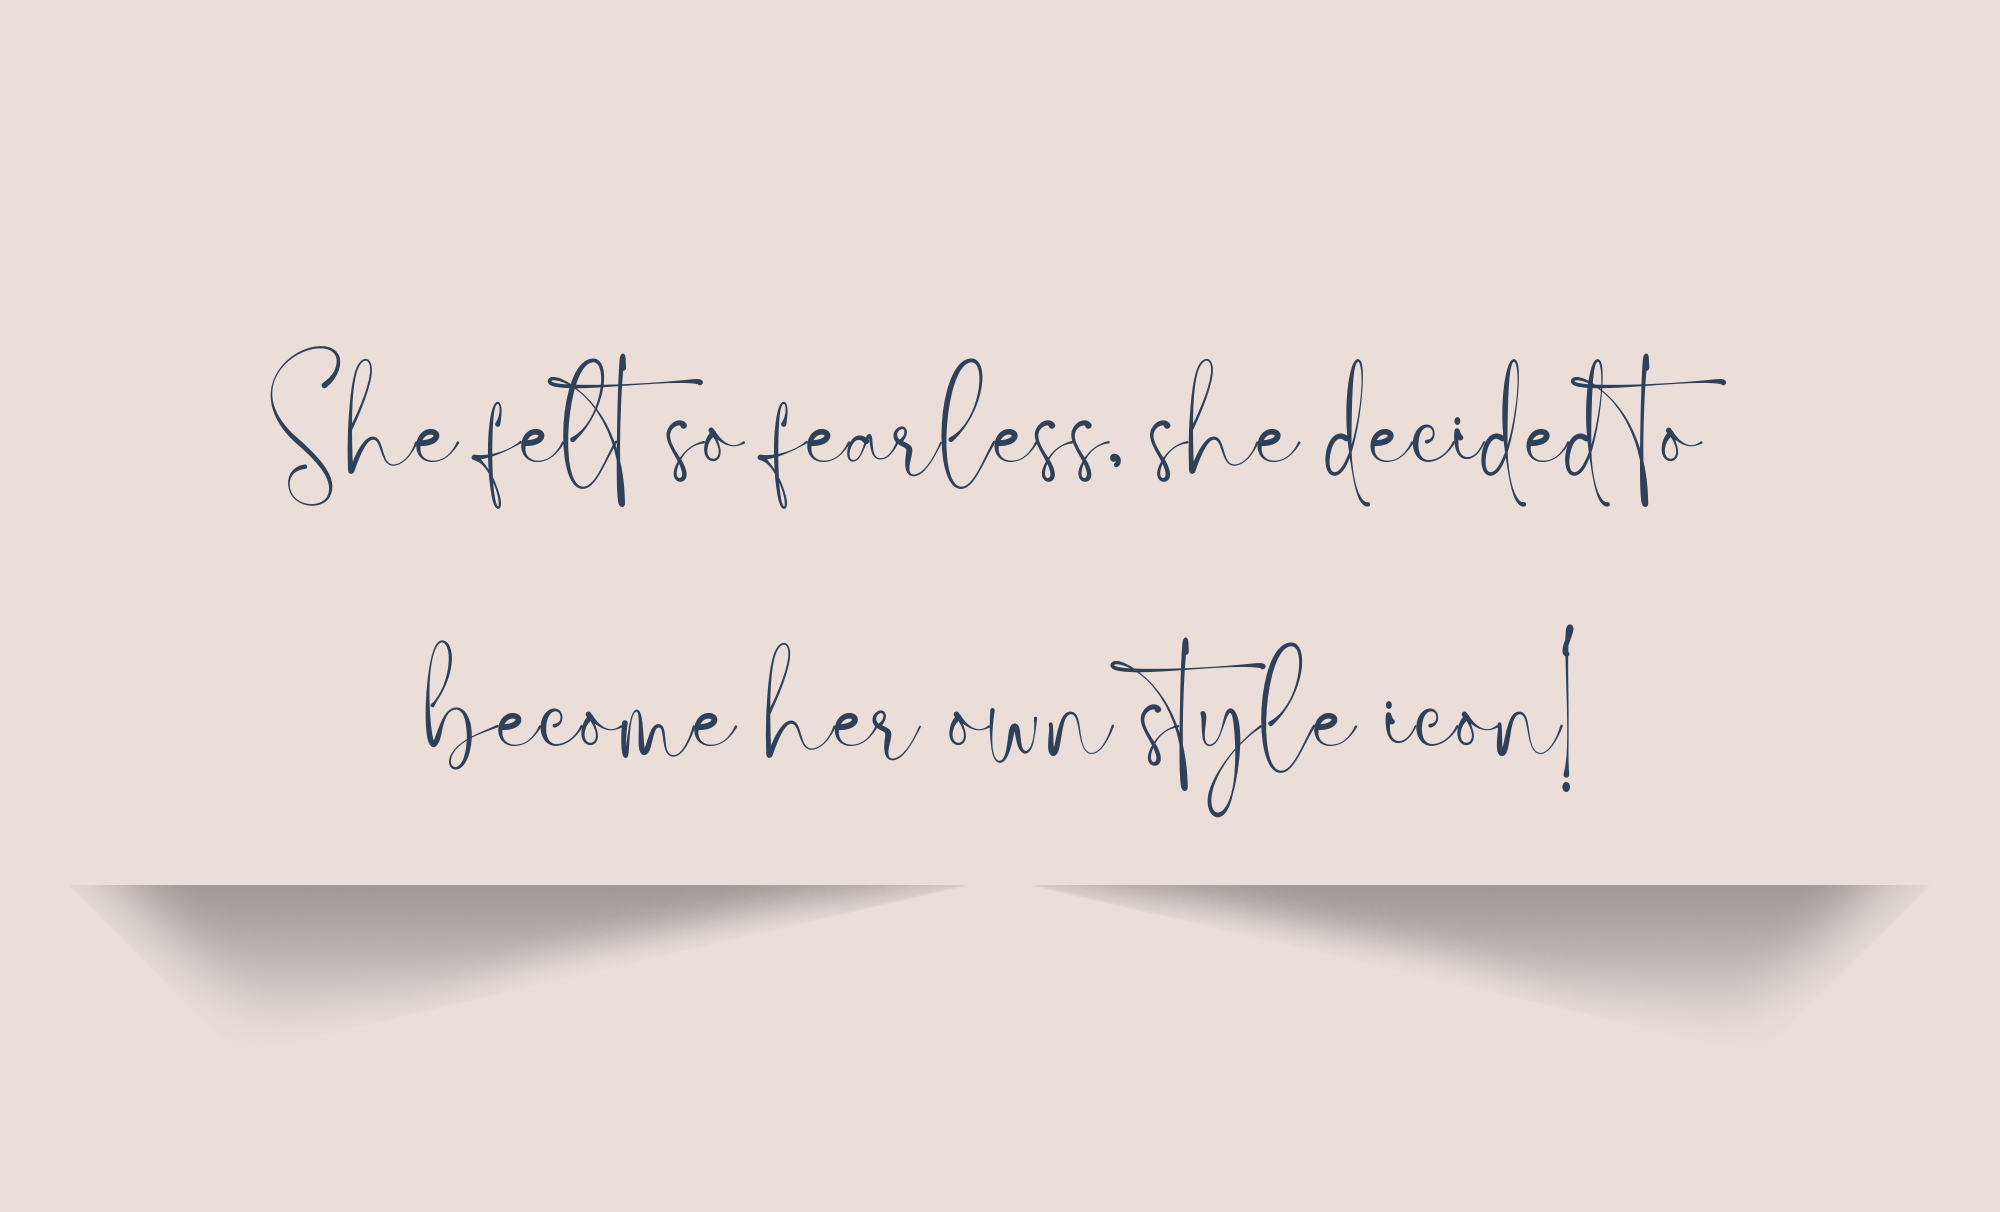 She felt so fearless, she decided to
become her own style icon!